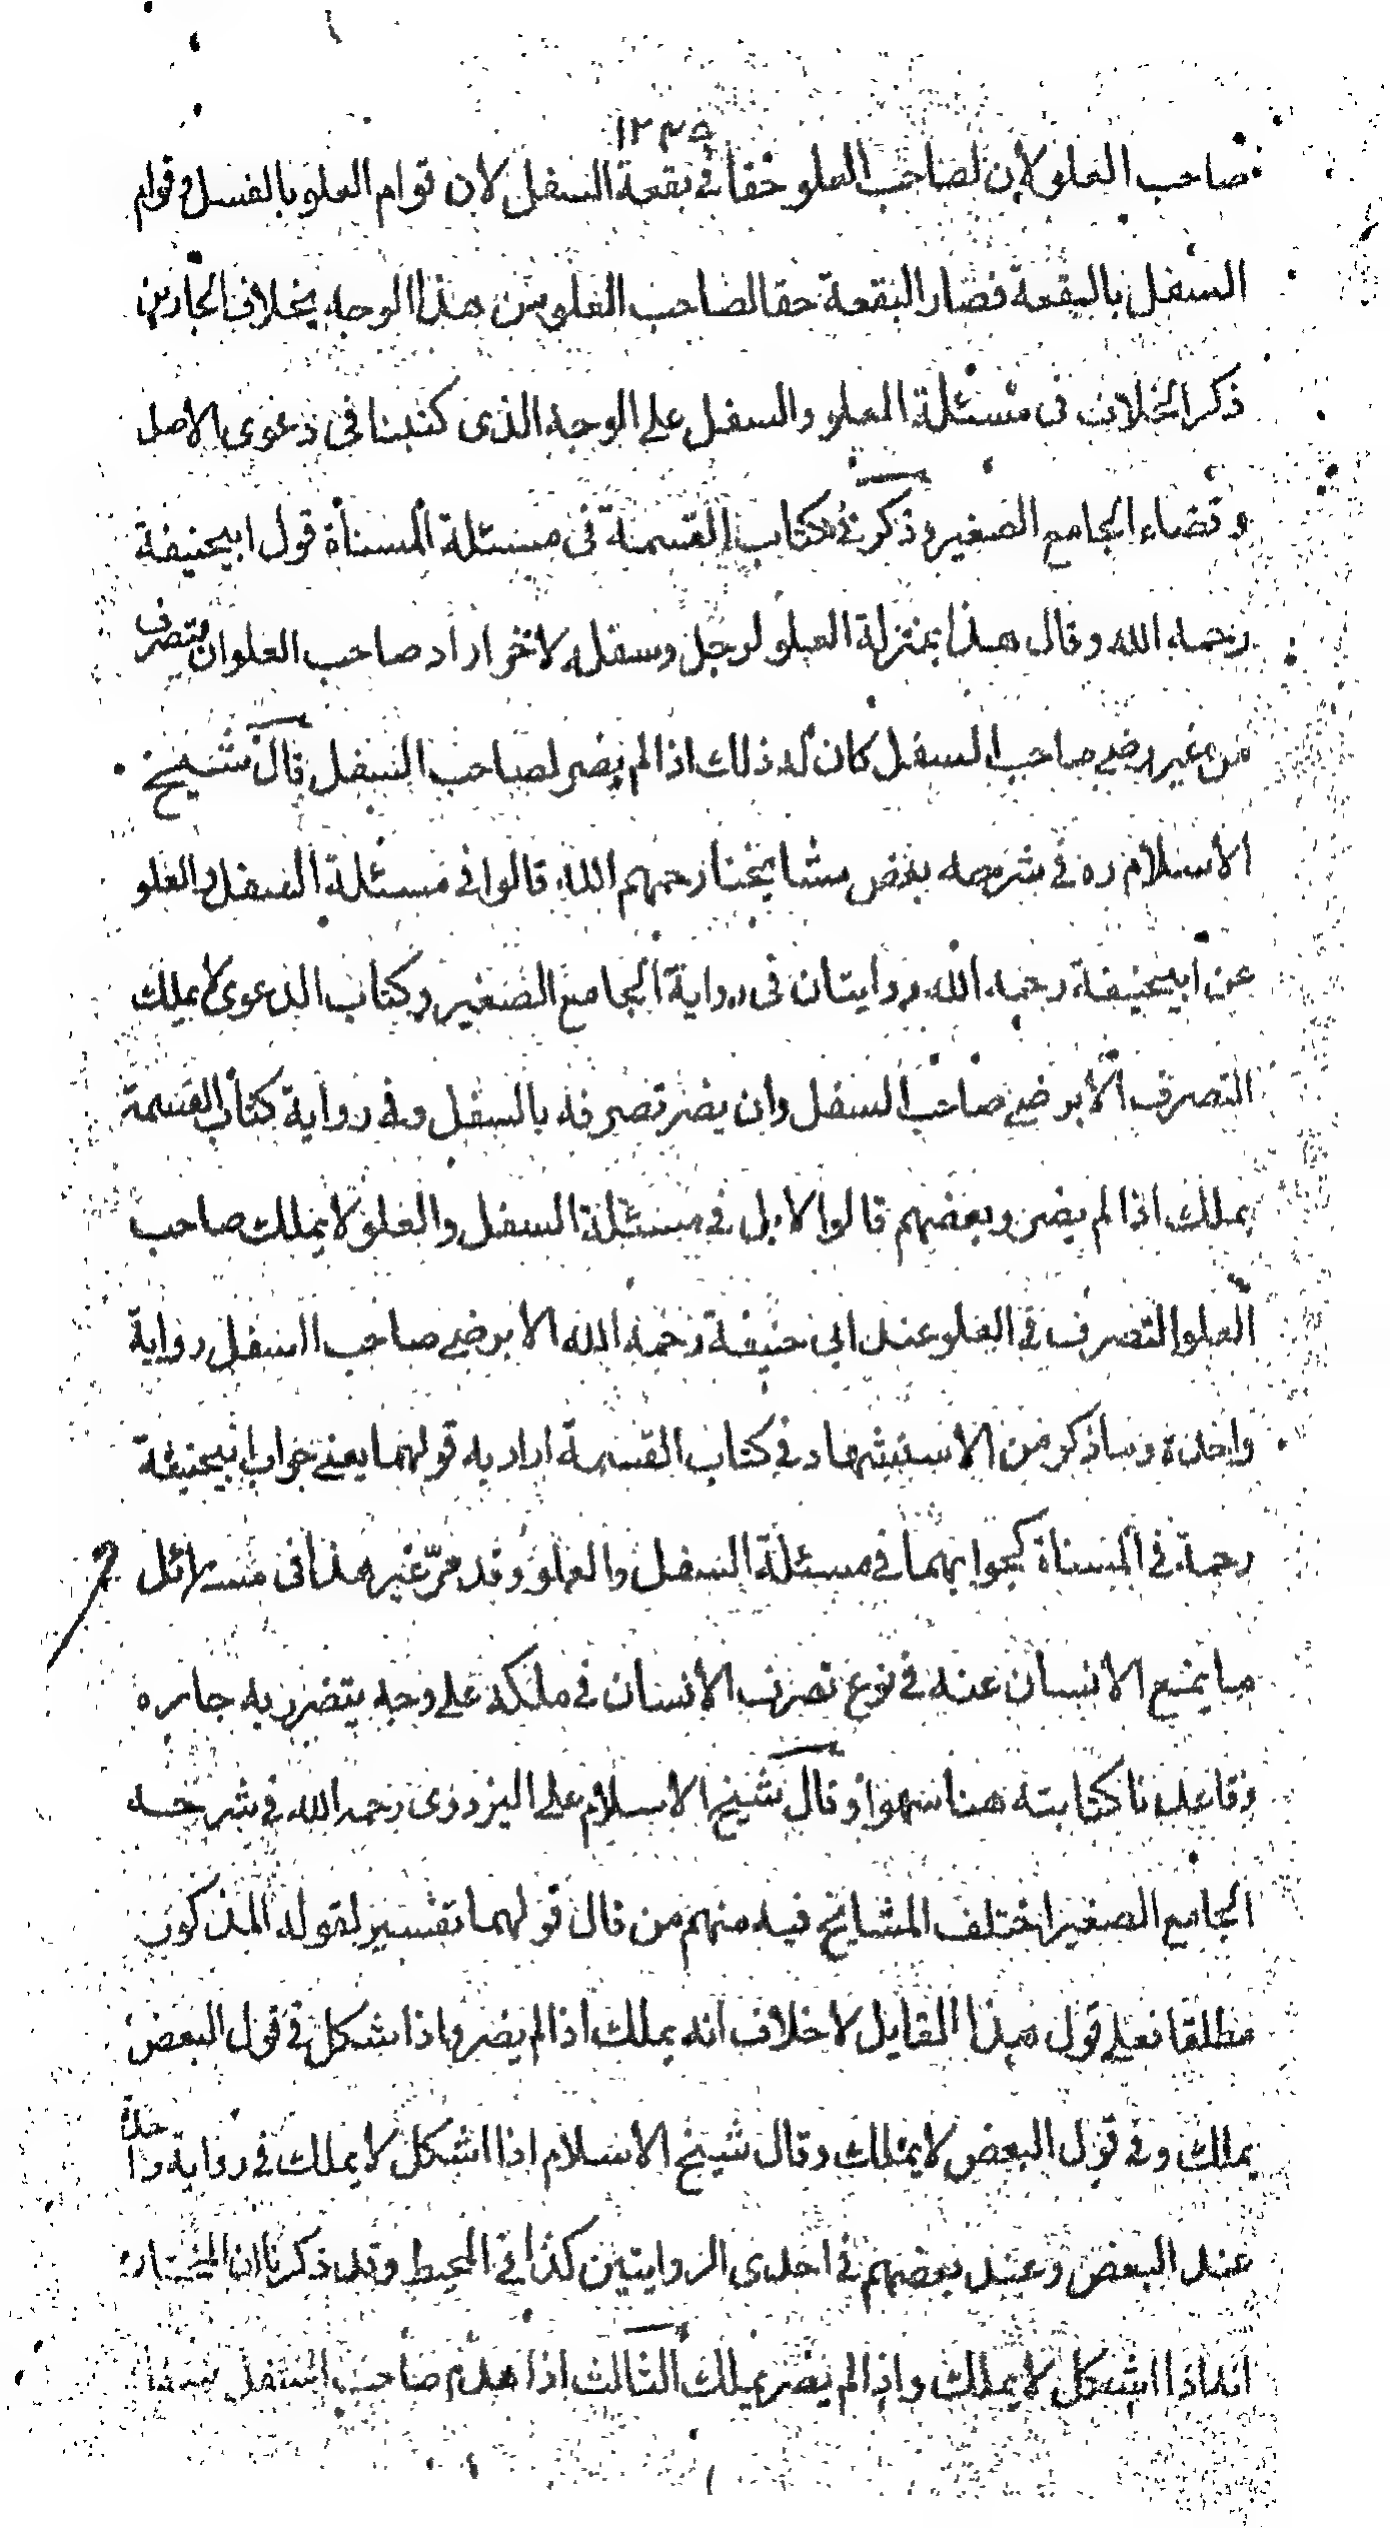 ١٢٣٥
صاحب العلو لان لصاحب العلو حقا في بقعة السفل لان قوام العلو بالفسل وقوام
السفل بالبقعة فصار البقعة حقا لصاحب العلو من هذا الوجه بخلاف الجارين
ذكر الخلاف في مسئلة العلو والسفل على الوجه الذى كتبنا في دعوى الاصل
وقضاء الجامع الصغير وذكر في كتاب القسمة في مسئلة المسناة قول ابيحنيفة
رحمه الله وقال هذا بمنزلة العلو لرجل وسفله لاخر اراد صاحب العلو ان يتصرف
من غير رضى صاحب السفل كان له ذلك اذا لم يضر لصاحب السفل قال شيخ
الاسلام ره في شرحه بعض مشايخنا رحمهم الله قالوا في مسئلة السفل والعلو
عن ابيحنيفة رحمه الله روايتان فى رواية الجامع الصغير وكتاب الدعوى لا يملك
التصرف الا برضى صاحب السفل وان يضر تصرفه بالسفل وفي رواية كتاب القسمة
يملك اذا لم يضر وبعضهم قالوا لا بل في مسئلة السفل والعلو لا يملك صاحب
العلو التصرف في العلو عند ابى حنيفة رحمه الله الا برضى صاحب السفل رواية
واحدة وما ذكر من الاستشهاد في كتاب القسمة اراد به قولهما يعنى جواب ابيحنيفة
رحمة في المسناة كجوابهما في مسئلة السفل والعلو وقد مرّ غير هذا فى مسائل
ما يمنع الانسان عنه في نوع تصرف الانسان في ملكه على وجه يتضرر به جاره
وقاعد نا كتابته هنا سهوا وقال شيخ الاسلام على البزدوى رحمه الله في شرحه
الجامع الصغير اختلف المشايخ فيه منهم من قال قولهما تفسير لقوله المذكور
مطلقا فعلى قول هذا القايل لا خلاف انه يملك اذا لم يضر واذا شكل في قول البعض
يملك وفي قول البعض لا يملك وقال شيخ الاسلام اذا اشكل لا يملك في رواية واحدة
عند البعض وعند بعضهم في احدى الروايتين كذا في المحيط وقد ذكرنا ان المختار
انه اذا اشكل لا يملك واذا لم يضر يملك الثالث اذا هدم صاحب السفل سفله